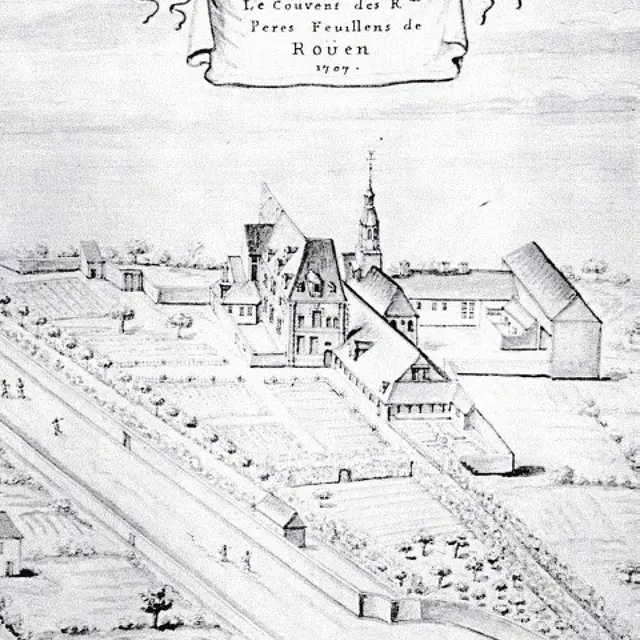 Le Couvent des R
Peres Feuillens de
Roüen
1707.